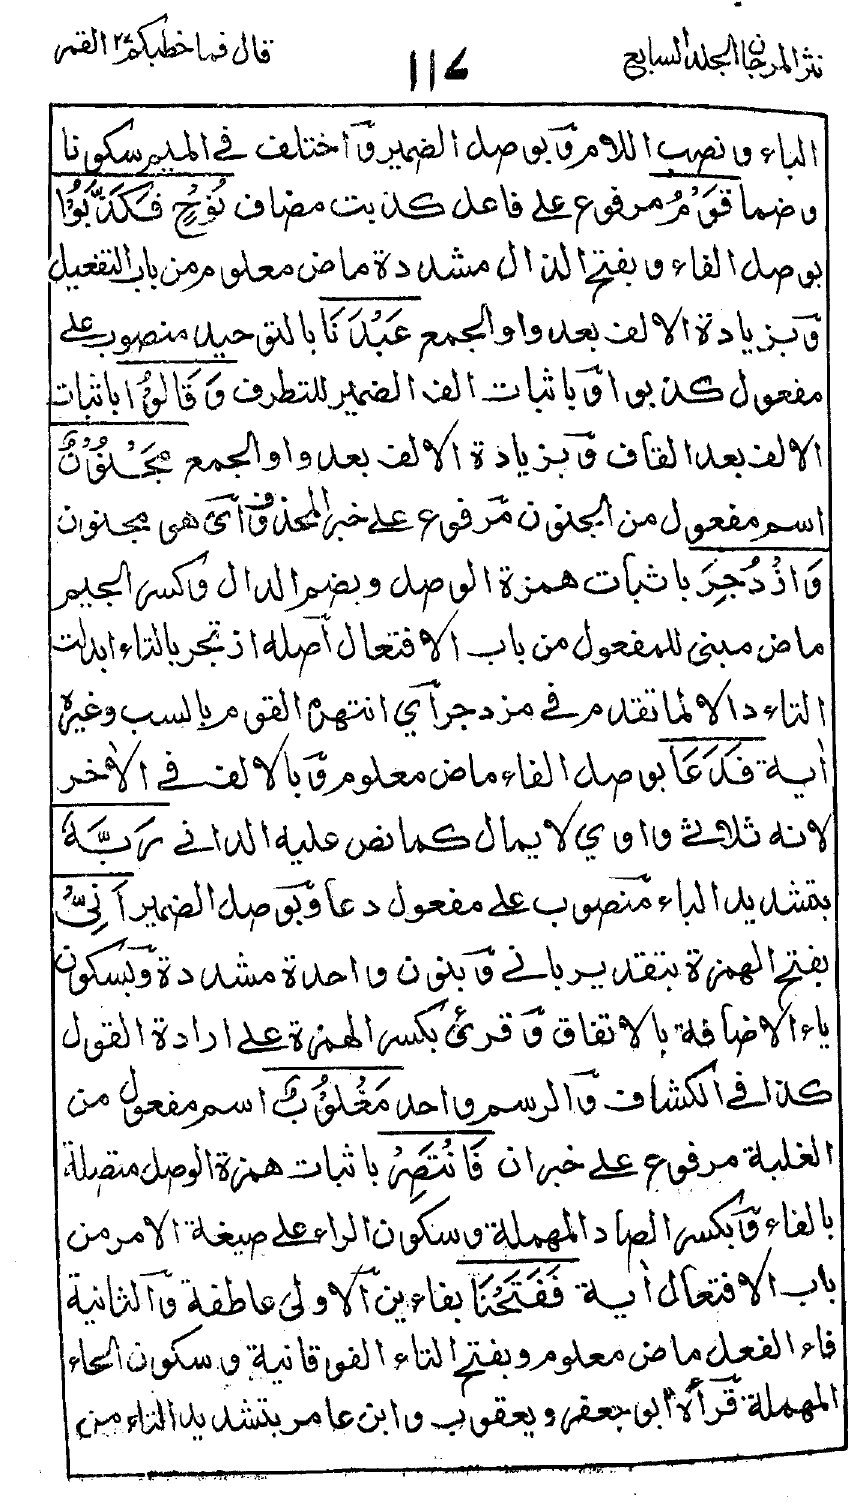 نثر المرجان المجلد السابع
١١٧
قال فما خطبكم ٢٧ القمر
الباء ونصب اللام وبوصل الضمير واختلف في الميم سكونا
وضما قَوْمُ مرفوع على فاعل كذبت مضاف نُوْحٍ فَكَذَّبُوْا
بوصل الفاء وبفتح الذال مشددة ماض معلوم من باب التفعيل
وبزيادة الالف بعد واو الجمع عَبْدَنَا بالتوحيد منصوب على
مفعول كذبوا وباثبات الف الضمير للتطرف وَقَالُوْا باثبات
الالف بعد القاف وبزيادة الالف بعد واو الجمع مَجْنُوْنٌ
اسم مفعول من الجنون مرفوع على خبر المحذوف اي هو مجنون
وَازْدُجِرَ باثبات همزة الوصل وبضم الدال وكسر الجيم
ماض مبني للمفعول من باب الافتعال اصله ازتجر بالتاء ابدلت
التاء دالا لما تقدم في مزدجر اي انتهره القوم بالسب وغيره
أية فَدَعَا بوصل الفاء ماض معلوم وبالالف في الأخر
لانه ثلاثي واوي لا يمال كما نص عليه الداني رَبَّهٗ
بتشديد الباء منصوب على مفعول دعا وبوصل الضمير اَنِّيْ
بفتح الهمزة بتقدير باني وبنون واحدة مشددة وبسكون
ياء الاضافة بالاتفاق وقرئ بكسر الهمزة على ارادة القول
كذا في الكشاف والرسم واحد مَغْلُوْبٌ اسم مفعول من
الغلبة مرفوع على خبر ان فَانْتَصِرْ باثبات همزة الوصل متصلة
بالفاء وبكسر الصاد المهملة وسكون الراء على صيغة الامر من
باب الافتعال أية فَفَتَحْنَا بفاءين الاولى عاطفة والثانية
فاء الفعل ماض معلوم وبفتح التاء الفوقانية وسكون الحاء
المهملة قرأه ابو جعفر ويعقوب وابن عامر بتشديد التاء من